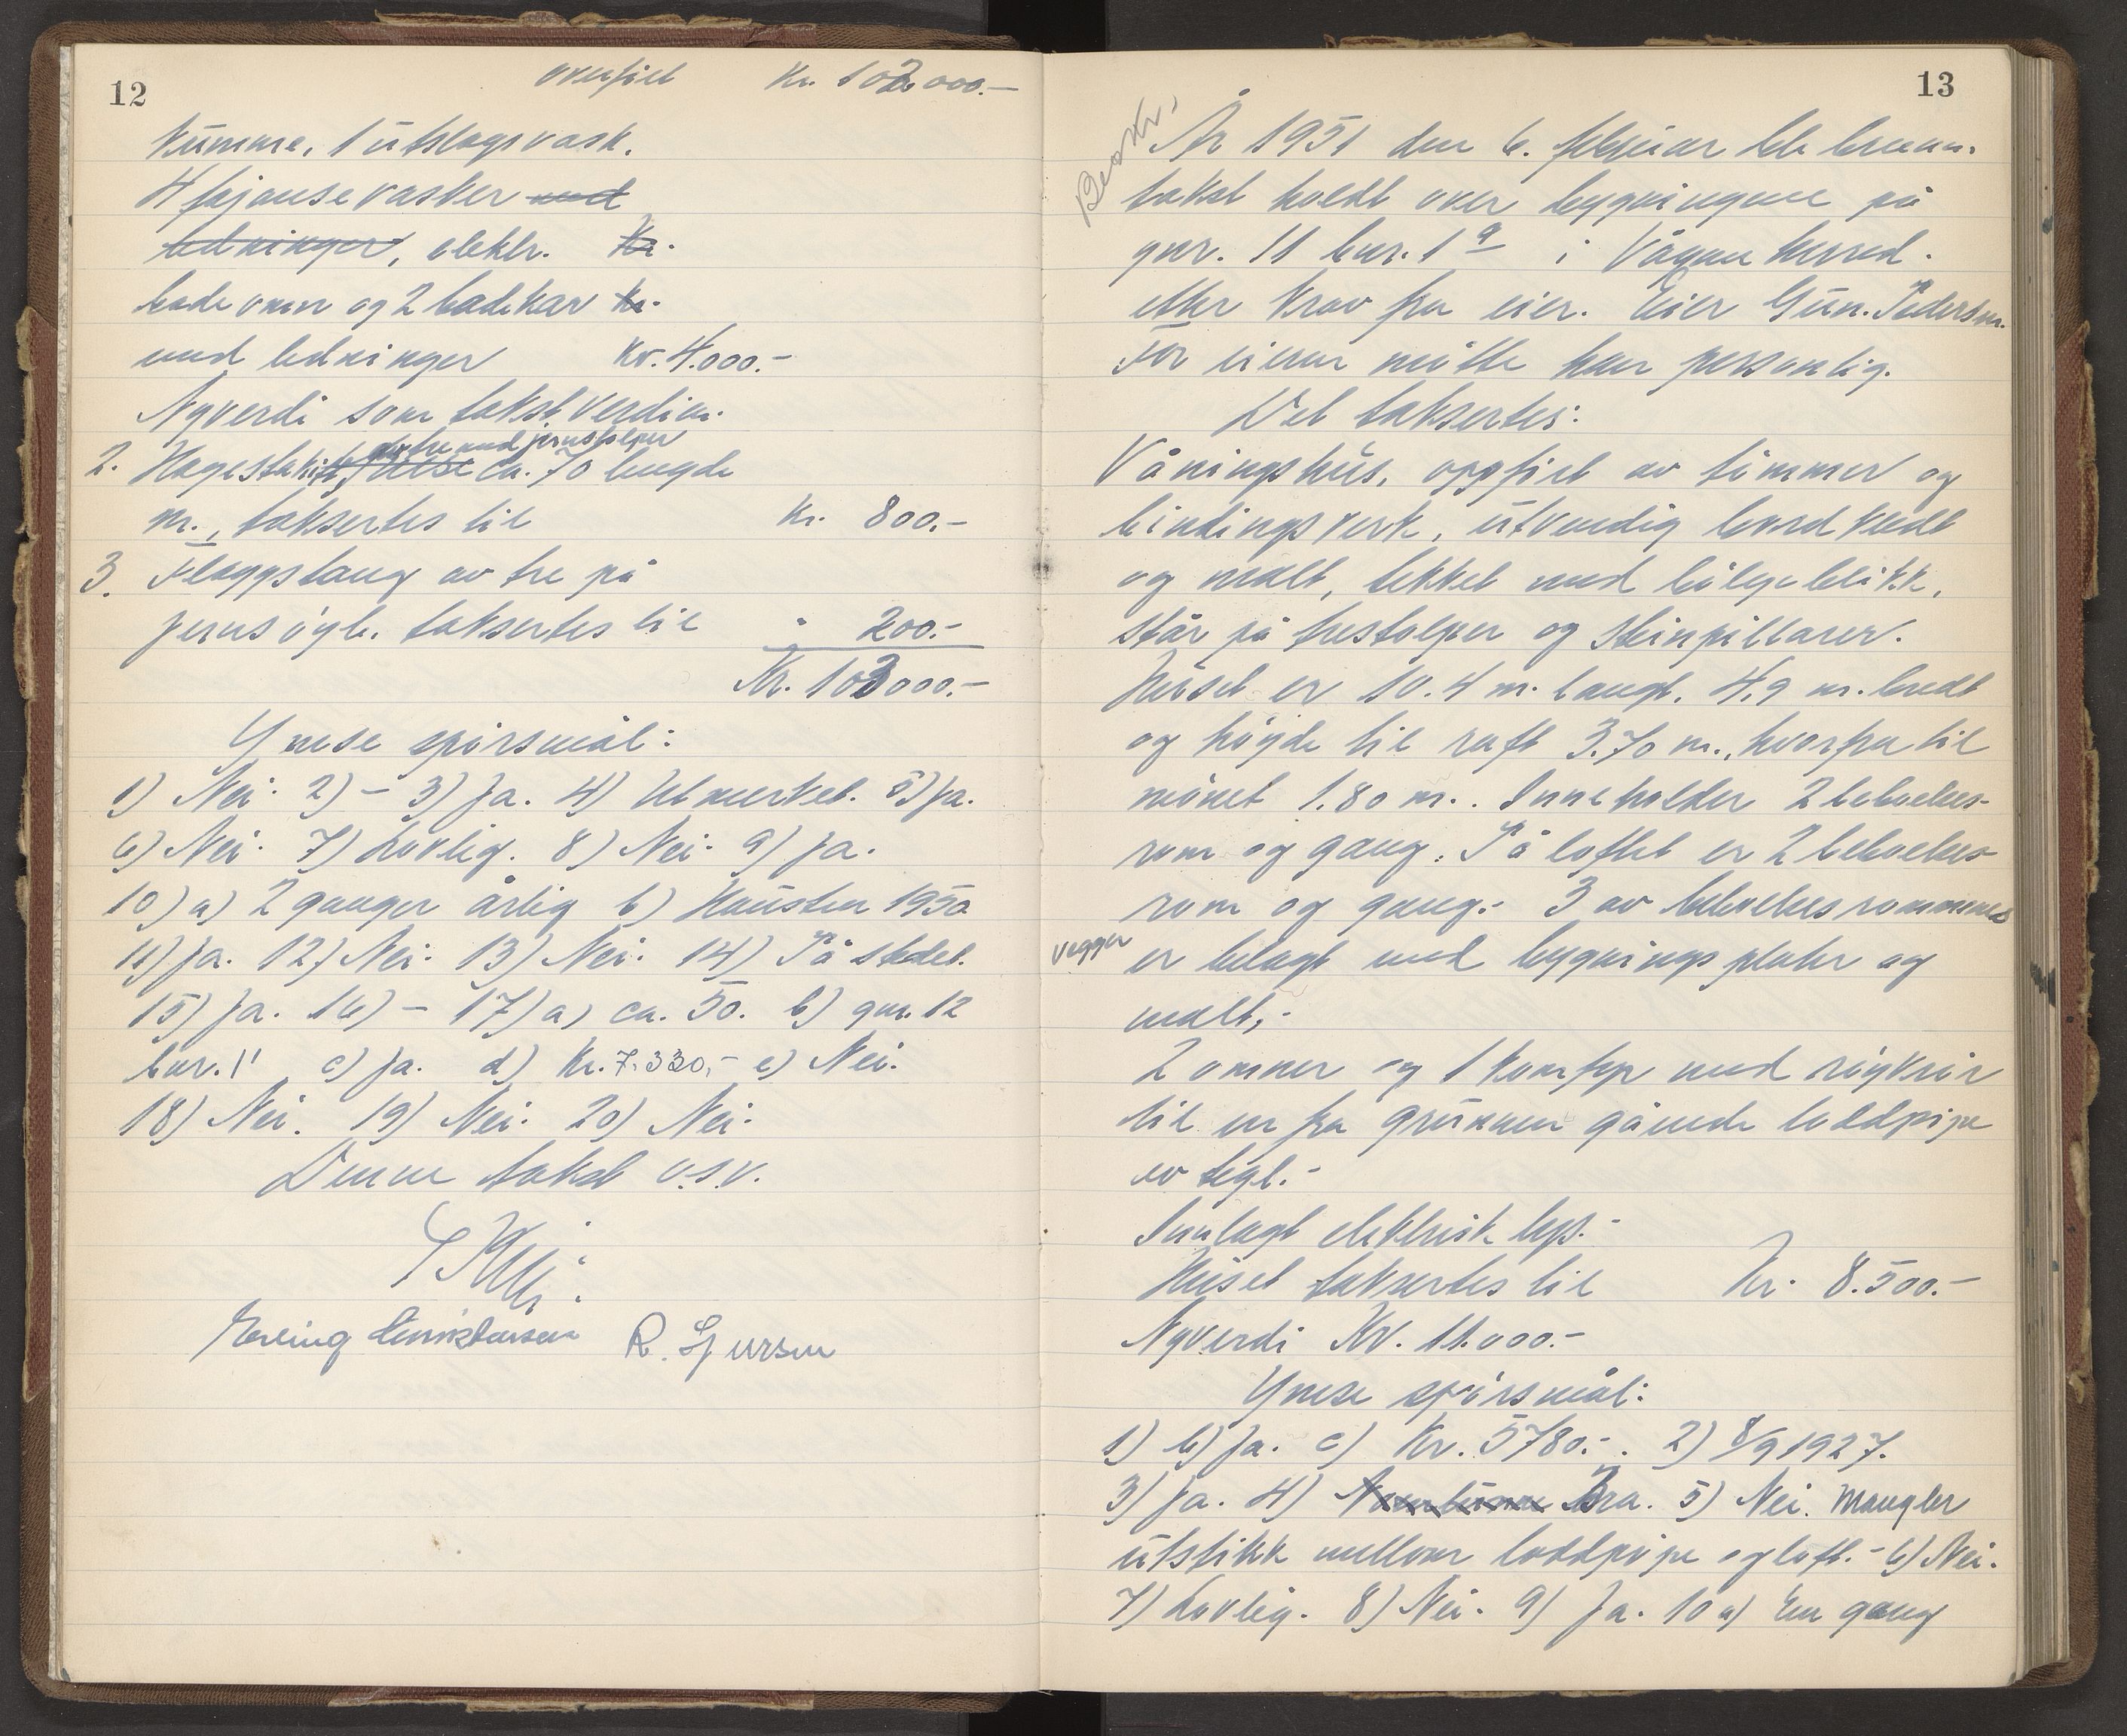 12
overført Kr. 102000.-
kumme, 1 utslagsvask.
4 fajansevasker med
ledninger, elektr. Kr.
badeovn og 2 badekar Kr.
med ledninger Kr. 4.000.-
Nyverdi som takstverdien.
av tre med jernstolper
2. Hagestakitt, ca. 70 lengde
m., taksertes til Kr. 800.-
3. Flaggstang av tre på
jernsøyle. taksertes til " 200.-
Kr. 103000.-
Ymse spørsmål:
1) Nei. 2) - 3) Ja. 4) Utmerket. 5) Ja.
6) Nei. 7) Lovlig. 8) Nei. 9) Ja.
10) a) 2 ganger årlig b) Hausten 1950
11) Ja. 12) Nei. 13) Nei. 14) På stedet.
15) Ja. 16) - 17) a) ca. 50. b) gnr. 12
bnr. 1' c) Ja. d) Kr. 7.330,- e) Nei.
18) Nei. 19) Nei. 20) Nei.
Denne takst o.s.v.
Erling Christensen R. Sjursen
13
År 1951 den 6. februar ble brann-
takst holdt over bygningene på
gnr. 11 bnr. 1 a i Vågan herred.
etter krav fra eier. Eier Gun. Pedersen.
For eieren møtte han personlig.
Det taksertes:
Våningshus, oppført av timmer og
bindingsverk, utvendig bordkledt
og malt, tekket med bølgeblikk,
står på trestolper og steinpillarer.
Huset er 10.4 m. langt, 4,9 m. bredt
og høyde til raft 3.70 m., hvorfra til
mønet 1.80 m.. Inneholder 2 beboelses-
rom og gang. På loftet er 2 beboelses-
rom og gang.- 3 av beboelsesrommenes
vegger er belagt med bygningsplater og
malt.-
2 omner og 1 komfyr med røykrør
til en fra grunnen gående loddpipe
av tegl.-
Innlagt elektrisk lys.-
Huset taksertes til Kr. 8.500.-
Nyverdi Kr. 11.000.-
Ymse spørsmål:
1) b) Ja. c) Kr. 5780.-. 2) 8/9 1927.
3) Ja. 4) Bra. 5) Nei. Mangler
utstikk mellom loddpipe og loft.- 6) Nei.
7) Lovlig. 8) Nei. 9) Ja. 10 a) En gang